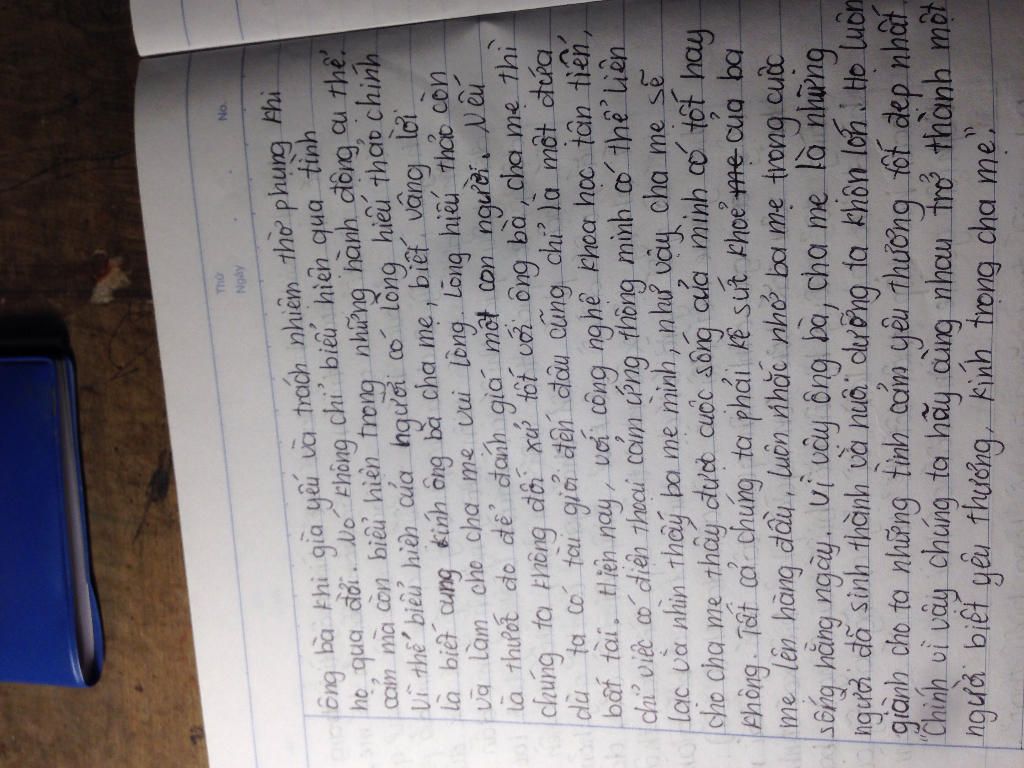 Thứ
Ngày
No.
ông bà khi già yếu và trách nhiệm thờ phụng khi
họ qua đời. Nó không chỉ biểu hiện qua tình
cảm mà còn biểu hiện trong những hành động cụ thể.
Vì thế biểu hiện của người có lòng hiếu thảo chính
là biết cung kính ông bà cha mẹ, biết vâng lời
và làm cho cha mẹ vui lòng. Lòng hiếu thảo còn
là thước đo để đánh giá một con người. Nếu
chúng ta không đối xử tốt với ông bà, cha mẹ thì
dù ta có tài giỏi đến đâu cũng chỉ là một đứa
bất tài. Hiện nay, với công nghệ khoa học tân tiến,
chỉ việc có điện thoại cảm ứng thông minh có thể liên
lạc và nhìn thấy ba mẹ mình, như vậy cha mẹ sẽ
cho cha mẹ thấy được cuộc sống của mình có tốt hay
không. Tất cả chúng ta phải kể sức khoẻ của ba
mẹ lên hàng đầu, luôn nhắc nhở ba mẹ trong cuộc
sống hằng ngày. Vì vậy ông bà, cha mẹ là những
người đã sinh thành và nuôi dưỡng ta khôn lớn. Họ luôn
giành cho ta những tình cảm yêu thương tốt đẹp nhất.
"Chính vì vậy chúng ta hãy cùng nhau trở thành một
người biết yêu thương, kính trọng cha mẹ".